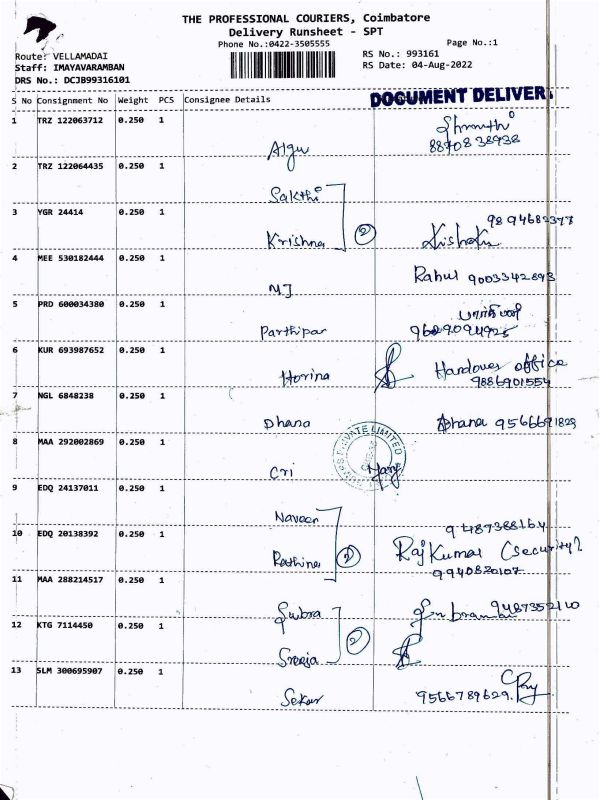 THE PROFESSIONAL COURIERS, Coimbatore
Delivery Runsheet - SPT
Phone No.:0422-3505555
Page No.:1
Route: VELLAMADAI
Staff: IMAYAVARAMBAN
DRS No.: DCJB99316101
RS No.: 993161
RS Date: 04-Aug-2022
S No Consignment No Weight PCS Consignee Details
DOCUMENT DELIVER
1 TRZ 122063712 0.250 1
Algu
88708 38938
2 TRZ 122064435 0.250 1
Sakthi
3 YGR 24414 0.250 1
Krishna 2
9894682377
4 MEE 530182444 0.250 1
MJ
Rahul 9003342893
5 PRD 600034380 0.250 1
Parthipan
6 KUR 693987652 0.250 1
Horina
Handover office
9886901554
7 NGL 6848238 0.250 1
Dhana
Dhana 9566691829
8 MAA 292002869 0.250 1
PRIVATE LIMITED
Cri
9 EDQ 24137011 0.250 1
Naveen
10 EDQ 20138392 0.250 1
Rathina 2
9487388164
Rajkumar (security)
9940820107
11 MAA 288214517 0.250 1
Subra
9487352110
12 KTG 7114450 0.250 1
Sreeja 2
13 SLM 300695907 0.250 1
Sekar
9566789629.